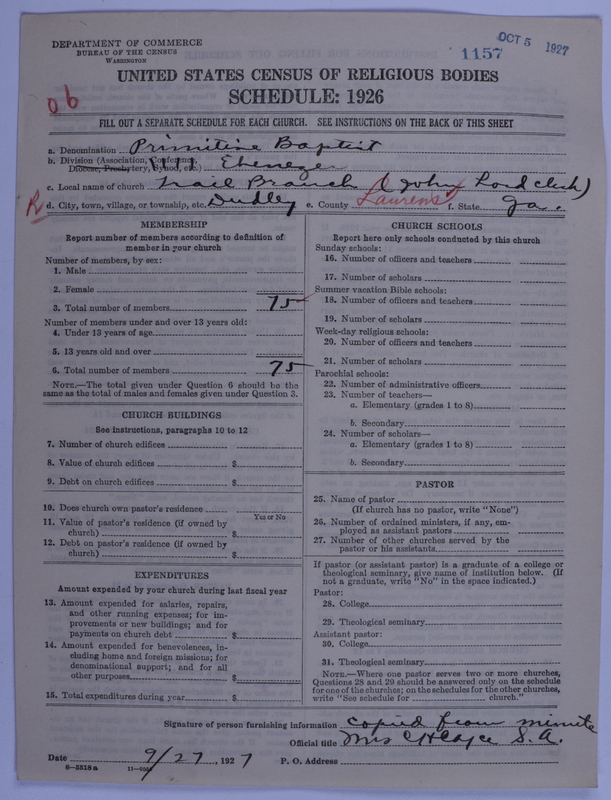 DEPARTMENT OF COMMERCE
BUREAU OF THE CENSUS
WASHINGTON
1157
OCT 5 1927
UNITED STATES CENSUS OF RELIGIOUS BODIES
SCHEDULE: 1926
06
FILL OUT A SEPARATE SCHEDULE FOR EACH CHURCH. SEE INSTRUCTIONS ON THE BACK OF THIS SHEET
a. Denomination Primitive Baptist
b. Division (Association, Conference, Diocese, Presbytery, Synod, etc.) Ebenezer
c. Local name of church Trail Branch (John Lord clerk)
R d. City, town, village, or township, etc. Dudley e. County Laurens f. State Ga.
MEMBERSHIP
Report number of members according to definition of
member in your church
Number of members, by sex:
1. Male
2. Female
3. Total number of members 75
Number of members under and over 13 years old:
4. Under 13 years of age
5. 13 years old and over
6. Total number of members 75
NOTE.—The total given under Question 6 should be the
same as the total of males and females given under Question 3.
CHURCH BUILDINGS
See instructions, paragraphs 10 to 12
7. Number of church edifices
8. Value of church edifices $
9. Debt on church edifices $
10. Does church own pastor's residence
Yes or No
11. Value of pastor's residence (if owned by
church) $
12. Debt on pastor's residence (if owned by
church) $
EXPENDITURES
Amount expended by your church during last fiscal year
13. Amount expended for salaries, repairs,
and other running expenses; for im-
provements or new buildings; and for
payments on church debt $
14. Amount expended for benevolences, in-
cluding home and foreign missions; for
denominational support; and for all
other purposes $
15. Total expenditures during year $
CHURCH SCHOOLS
Report here only schools conducted by this church
Sunday schools:
16. Number of officers and teachers
17. Number of scholars
Summer vacation Bible schools:
18. Number of officers and teachers
19. Number of scholars
Week-day religious schools:
20. Number of officers and teachers
21. Number of scholars
Parochial schools:
22. Number of administrative officers
23. Number of teachers—
a. Elementary (grades 1 to 8)
b. Secondary
24. Number of scholars—
a. Elementary (grades 1 to 8)
b. Secondary
PASTOR
25. Name of pastor
(If church has no pastor, write "None")
26. Number of ordained ministers, if any, em-
ployed as assistant pastors
27. Number of other churches served by the
pastor or his assistants
If pastor (or assistant pastor) is a graduate of a college or
theological seminary, give name of institution below. (If
not a graduate, write "No" in the space indicated.)
Pastor:
28. College
29. Theological seminary
Assistant pastor:
30. College
31. Theological seminary
NOTE.—Where one pastor serves two or more churches,
Questions 28 and 29 should be answered only on the schedule
for one of the churches; on the schedules for the other churches,
write "See schedule for church."
Signature of person furnishing information copied from minute
Official title Mrs C H Cayce S. A.
Date 9/27, 1927 P. O. Address
6-5518a